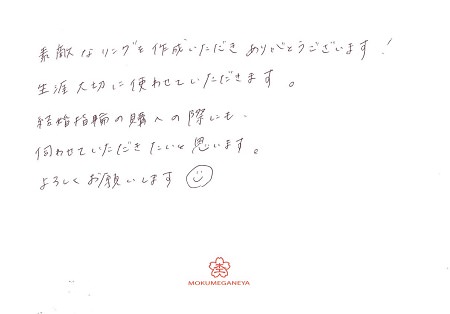 素敵なリングを作成いただきありがとうございます!
生涯大切に使わせていただきます。
結婚指輪の購入の際にも、
伺わせていただきたいと思います。
よろしくお願いします
MOKUMEGANEYA